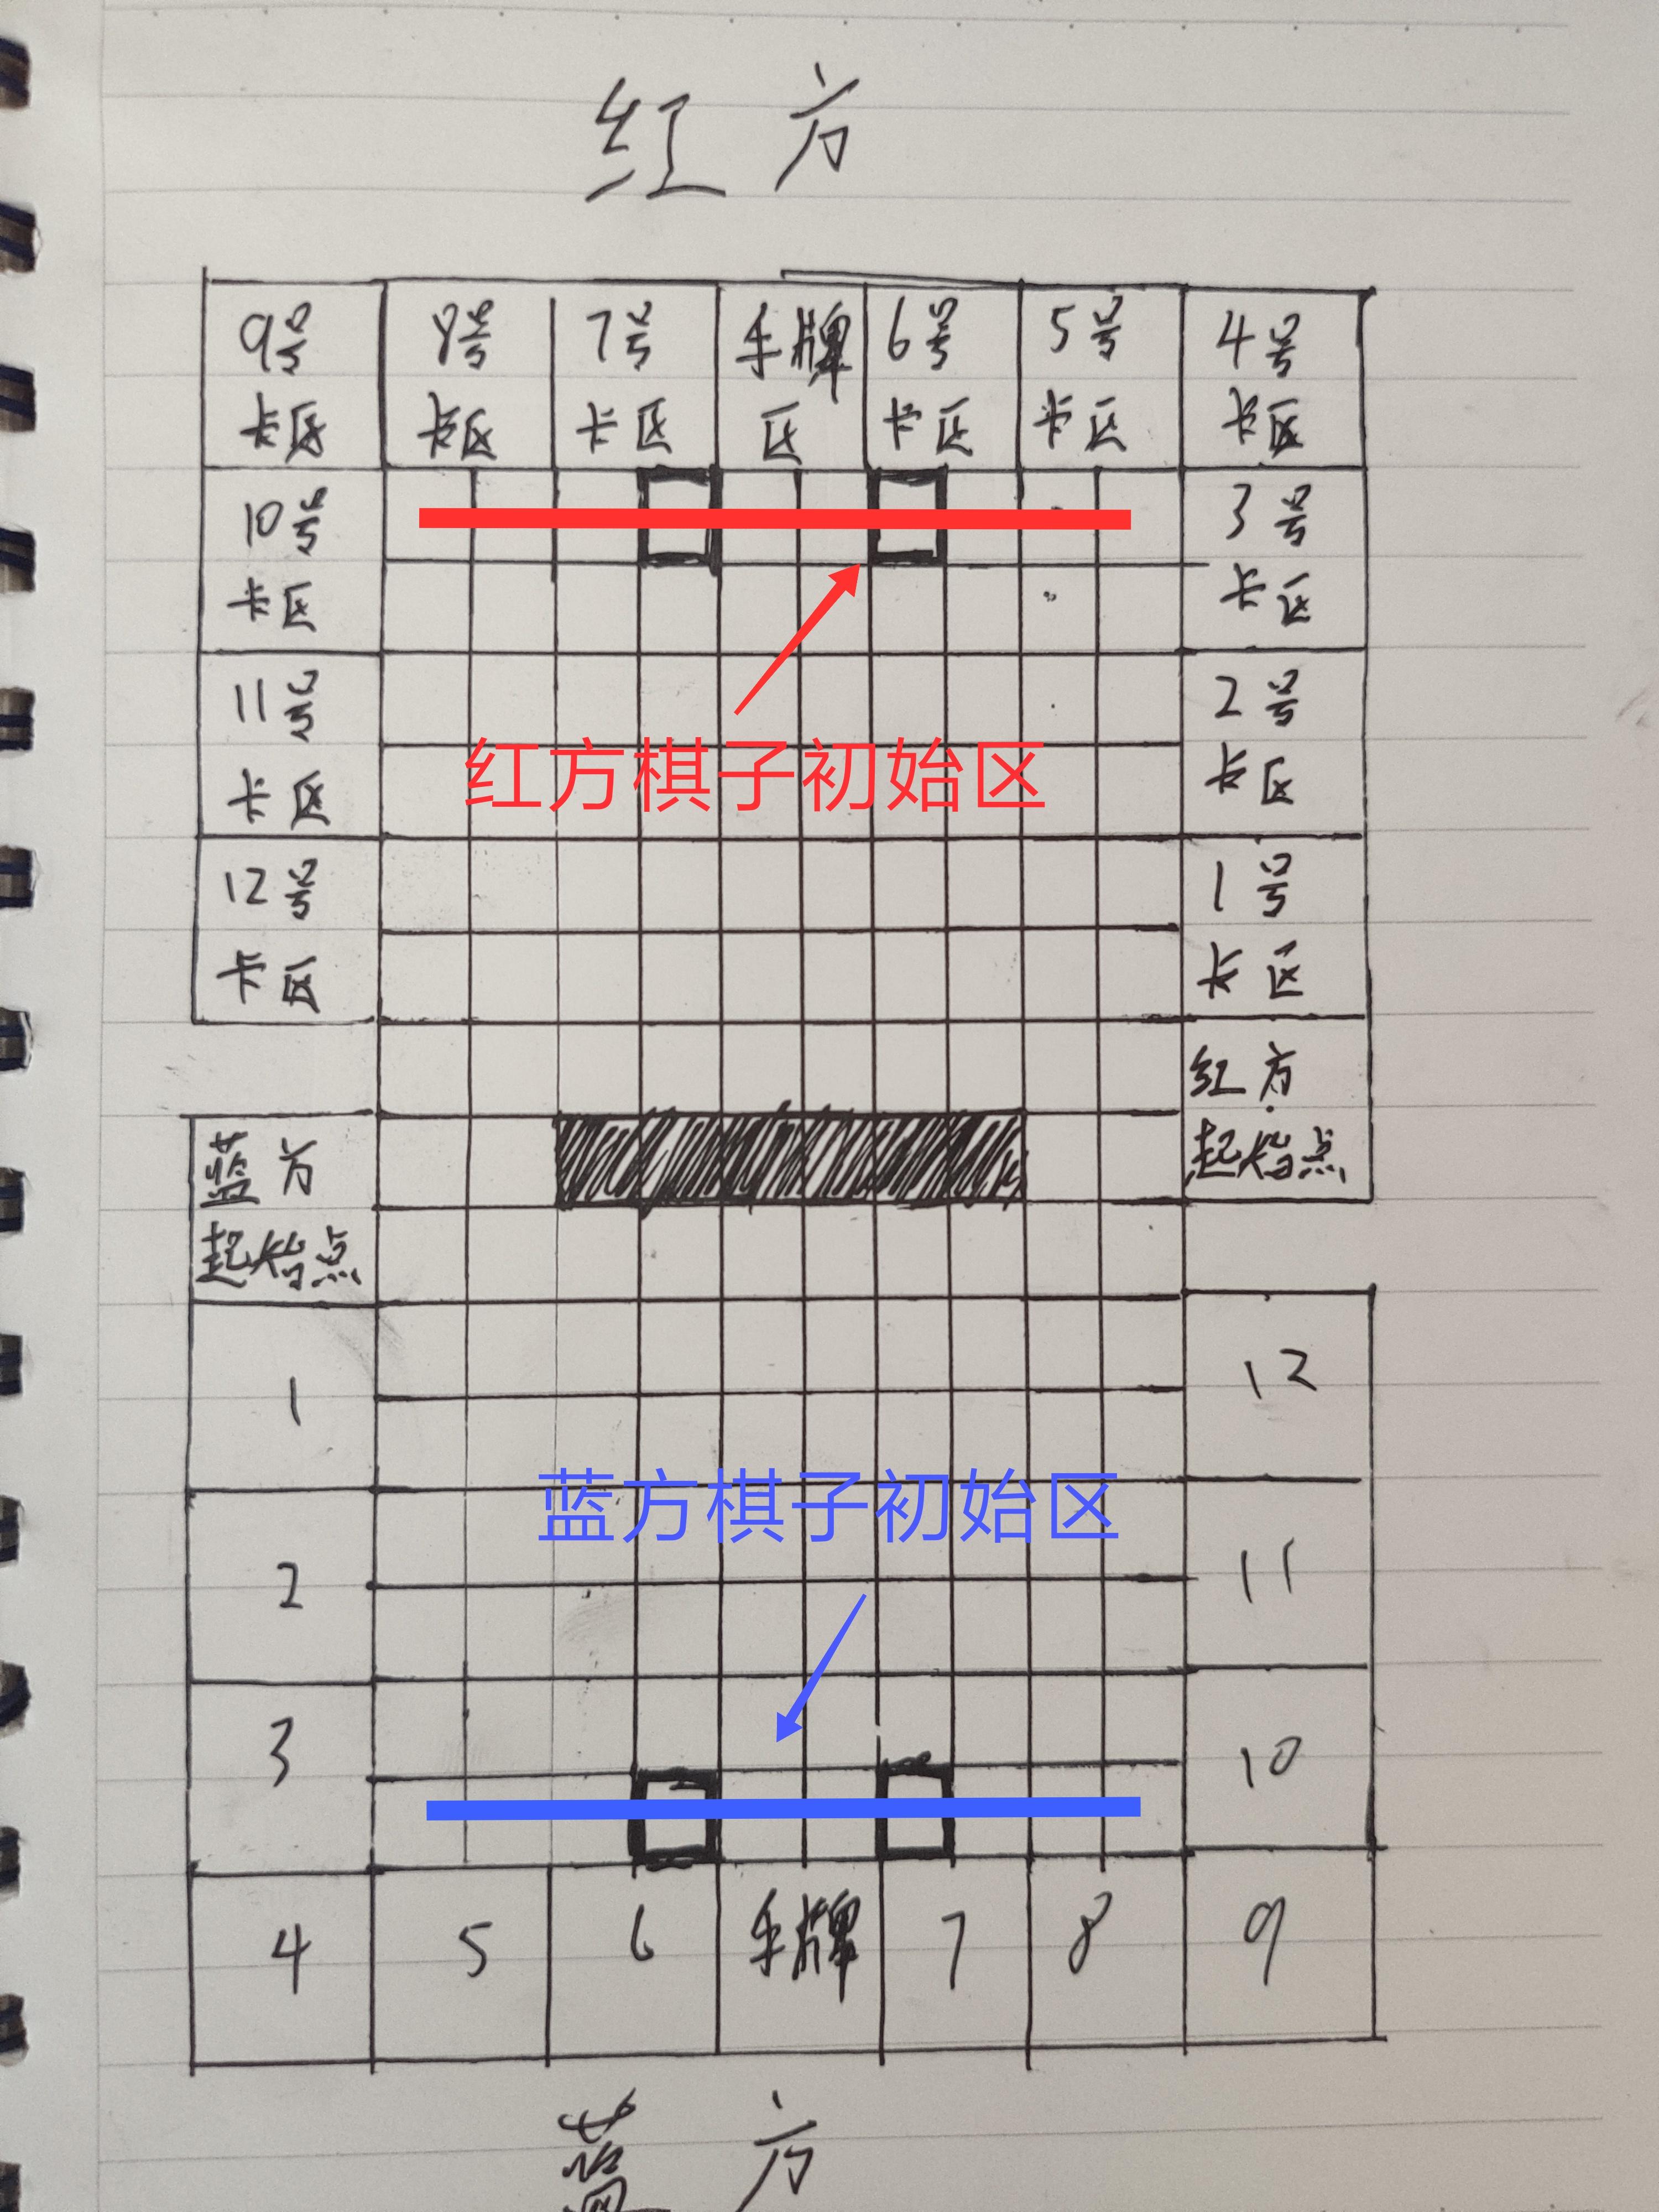 红方
9号 8号 7号 手牌 6号 5号 4号
卡区 卡区 卡区 区 卡区 卡区 卡区
10号 3号
卡区 卡区
11号 2号
红方棋子初始区
卡区 卡区
12号 1号
卡区 卡区
红方
蓝方 起始点
起始点
1 12
蓝方棋子初始区
2 11
3 10
4 5 6 手牌 7 8 9
蓝方